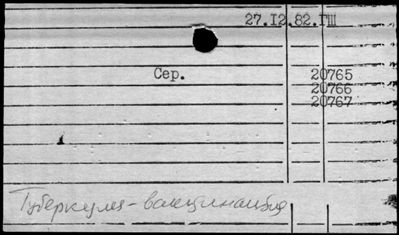 27.I2.82.ГШ
Сер. 20765
20766
20767
Туберкулез-вакцинация